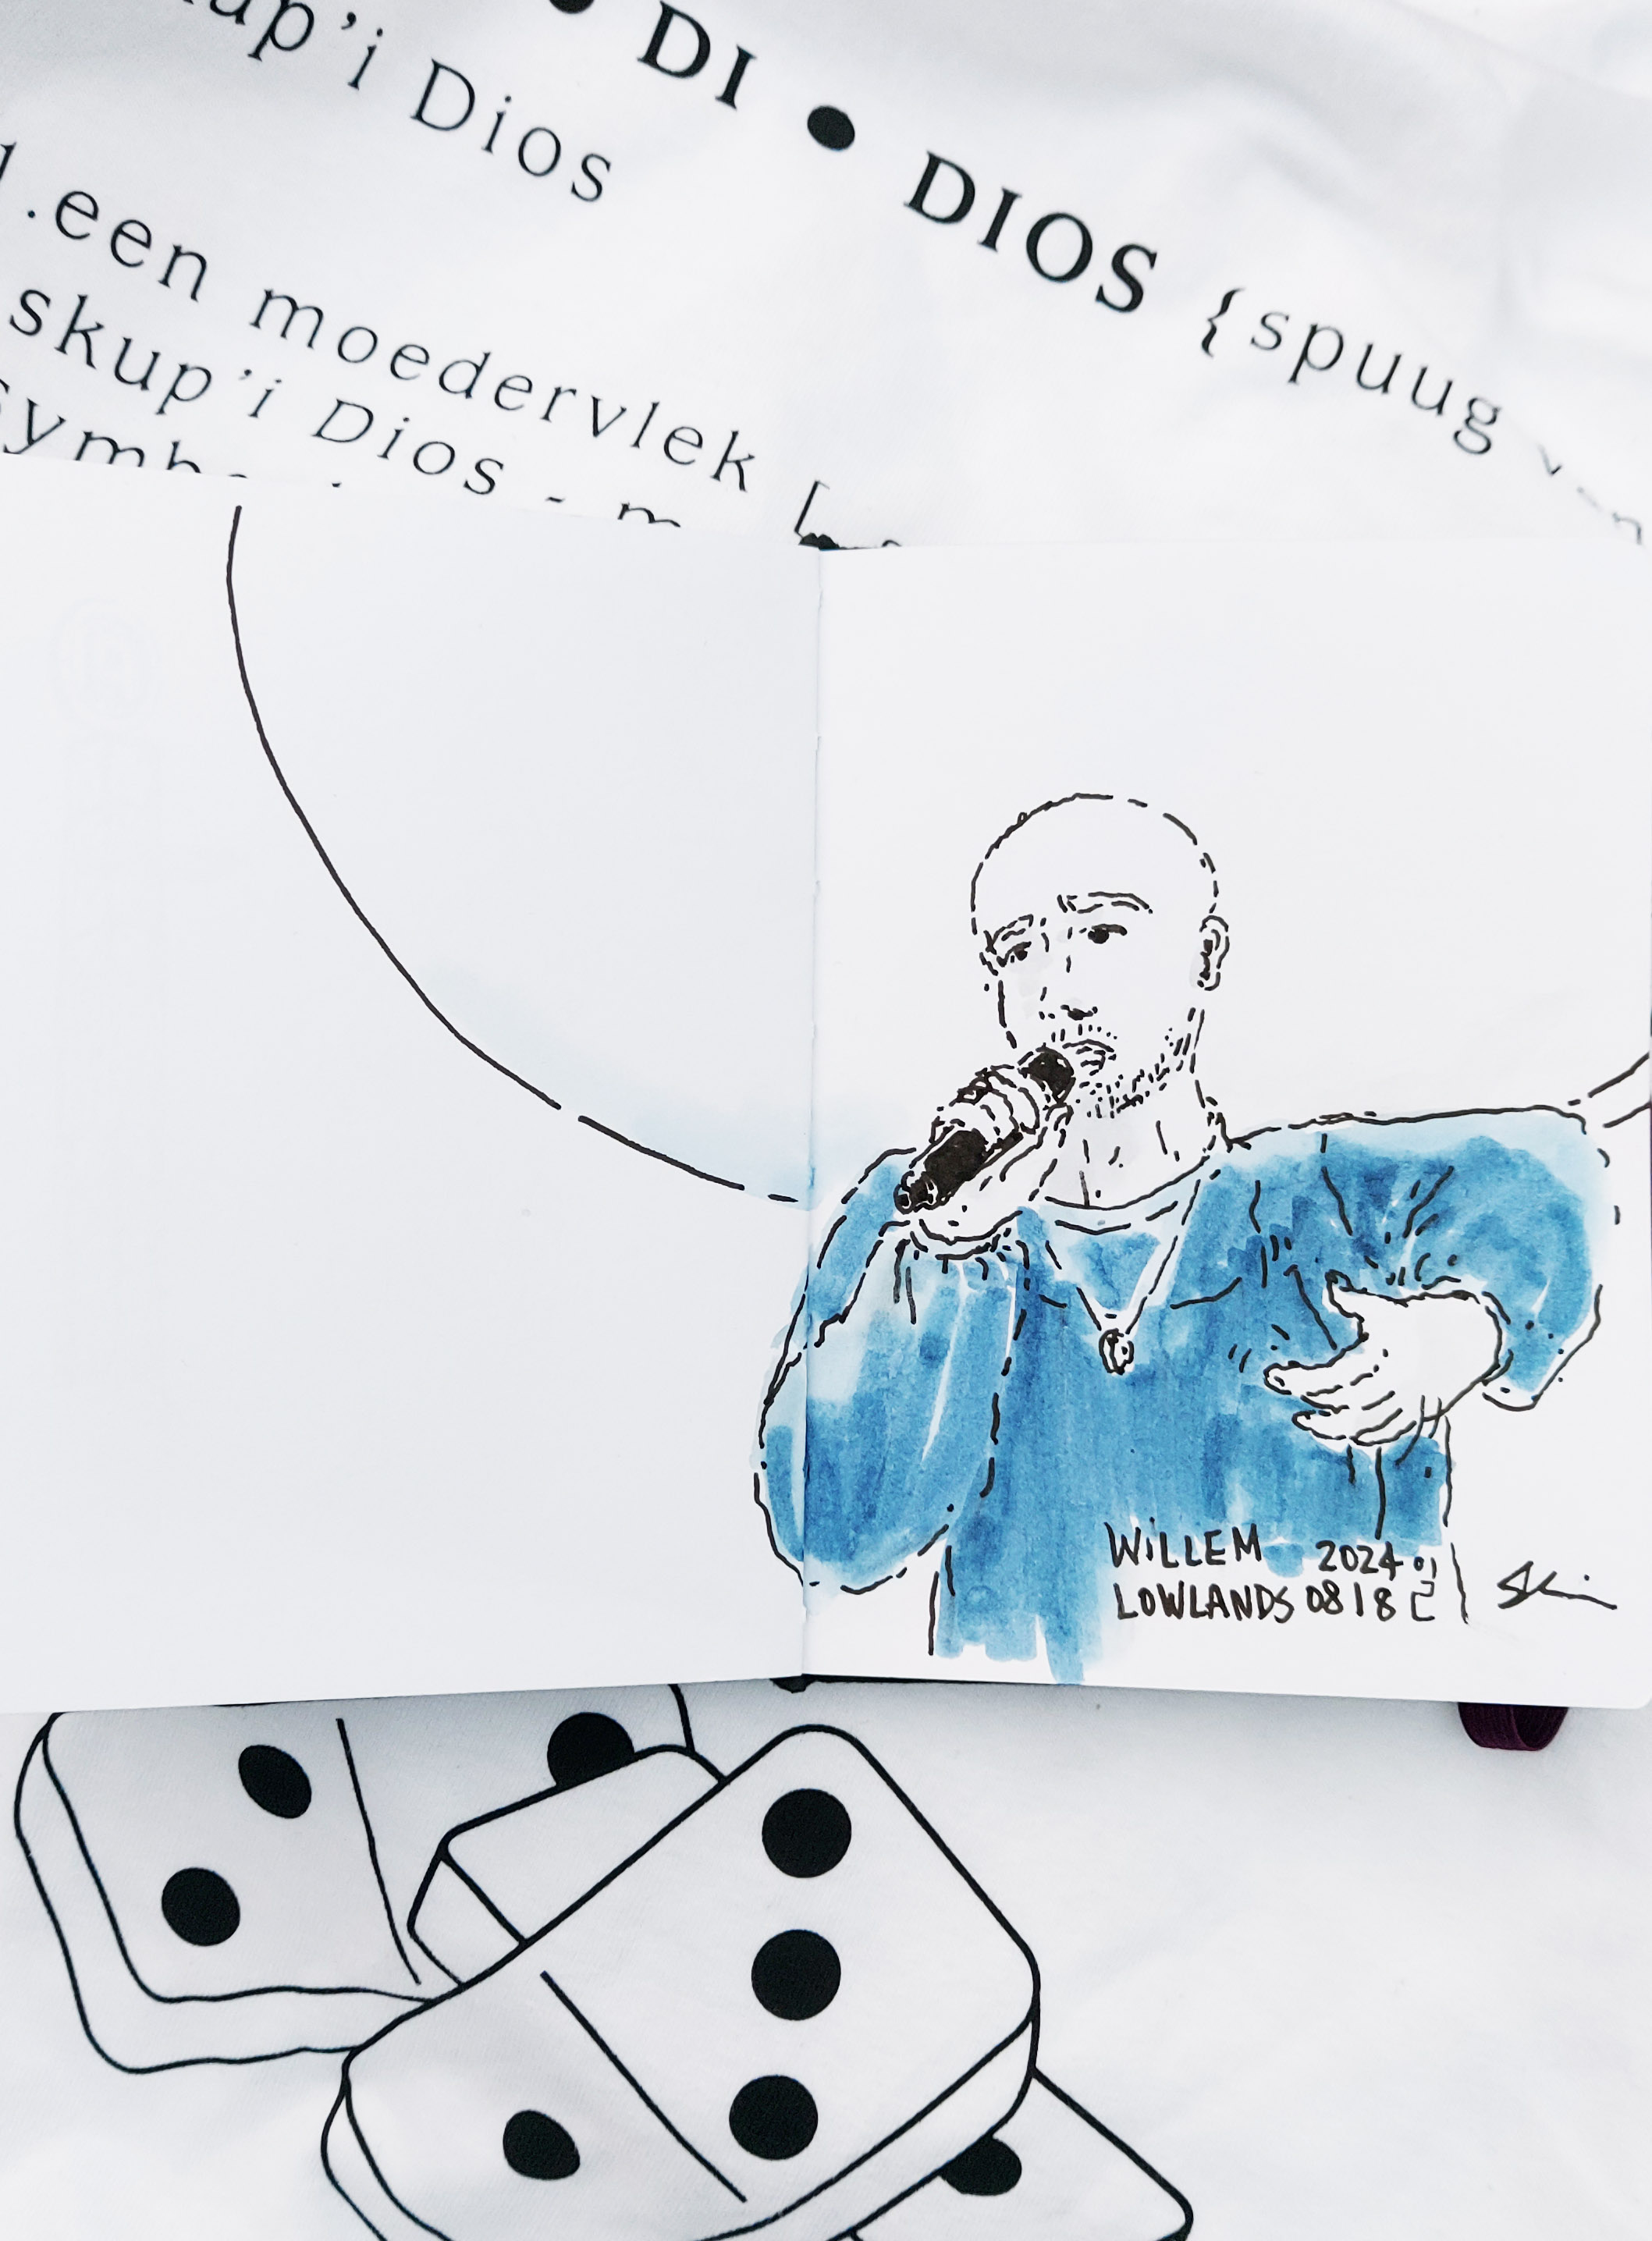 DI • DIOS {spuug
kup'i Dios
een moedervlek [
skup'i Dios - m
WiLLEM 2024 일
LOWLANDS 0818 일